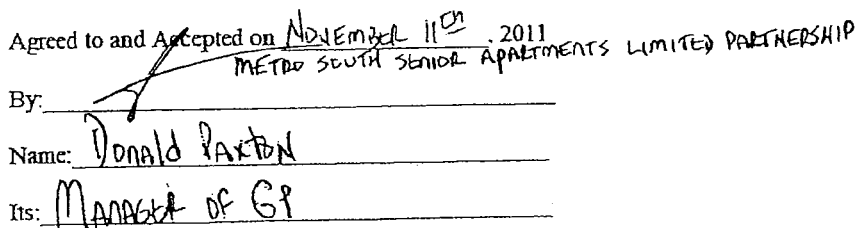 Agreed to and Accepted on NOVEMBER 11th, 2011
METRO SOUTH SENIOR APARTMENTS LIMITED PARTNERSHIP
By:
Name: Donald PAXTON
Its: MANAGER OF GP